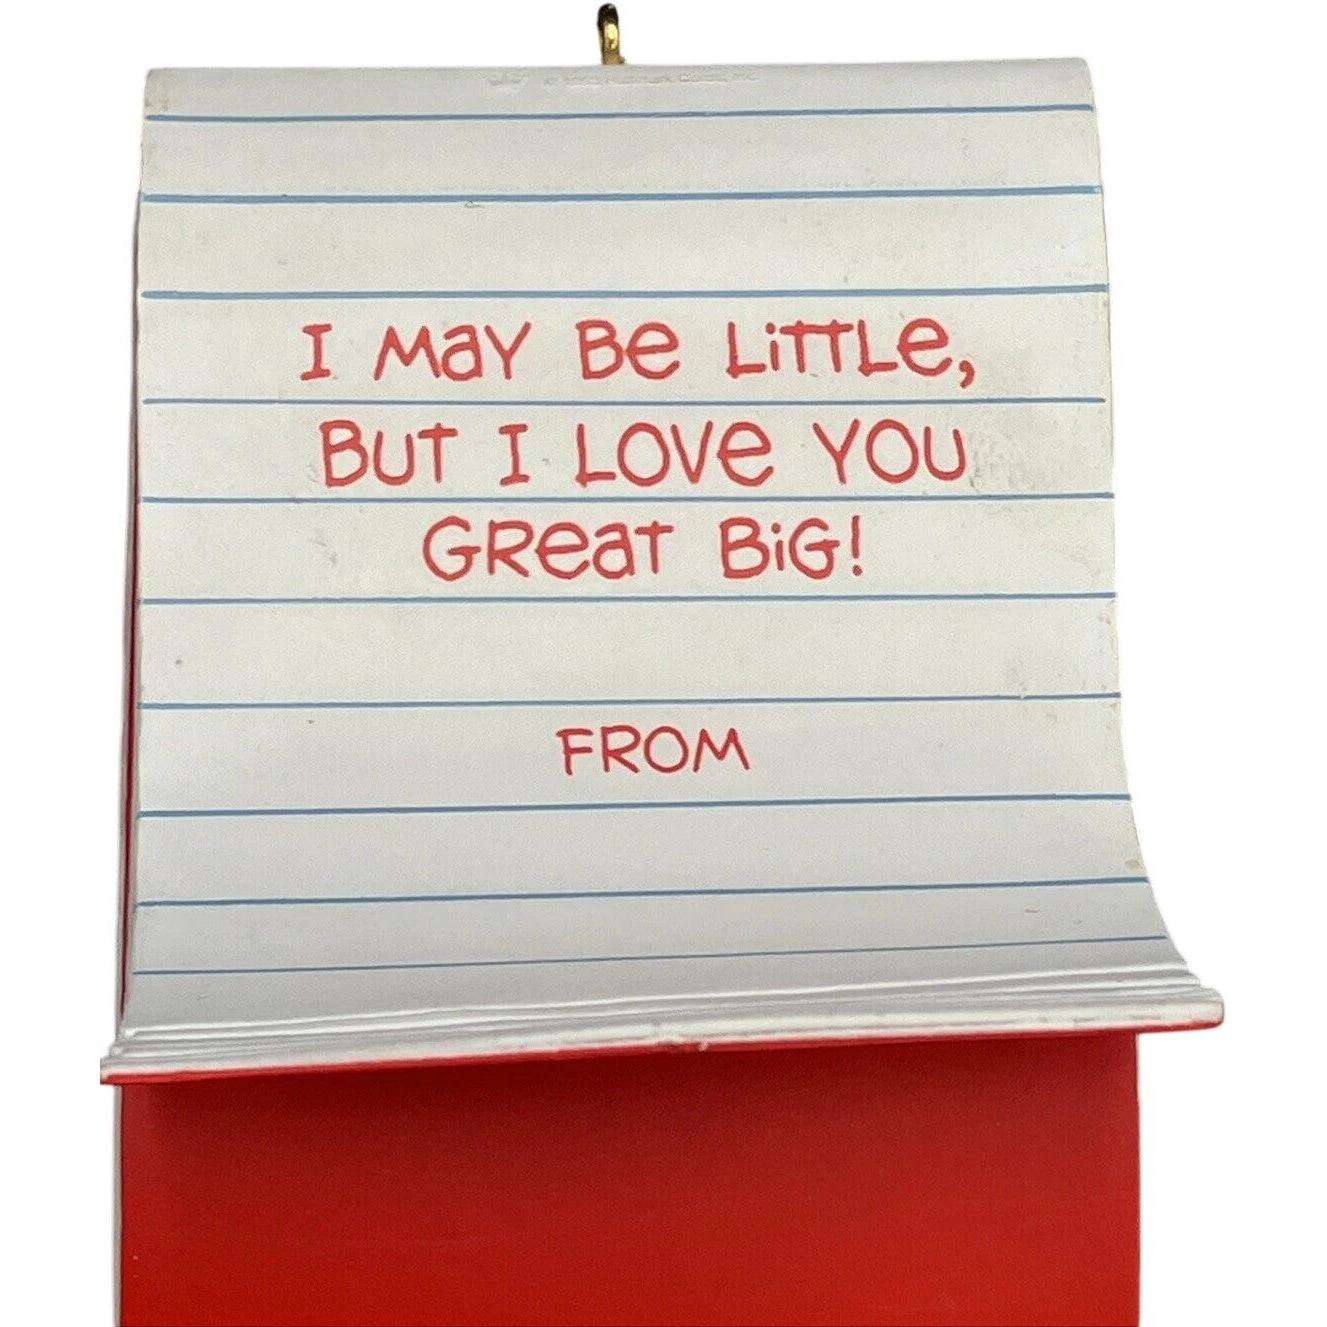 I MaY Be LiTTLe,
BuT I LOVe YOU
GReaT BiG!
FROM